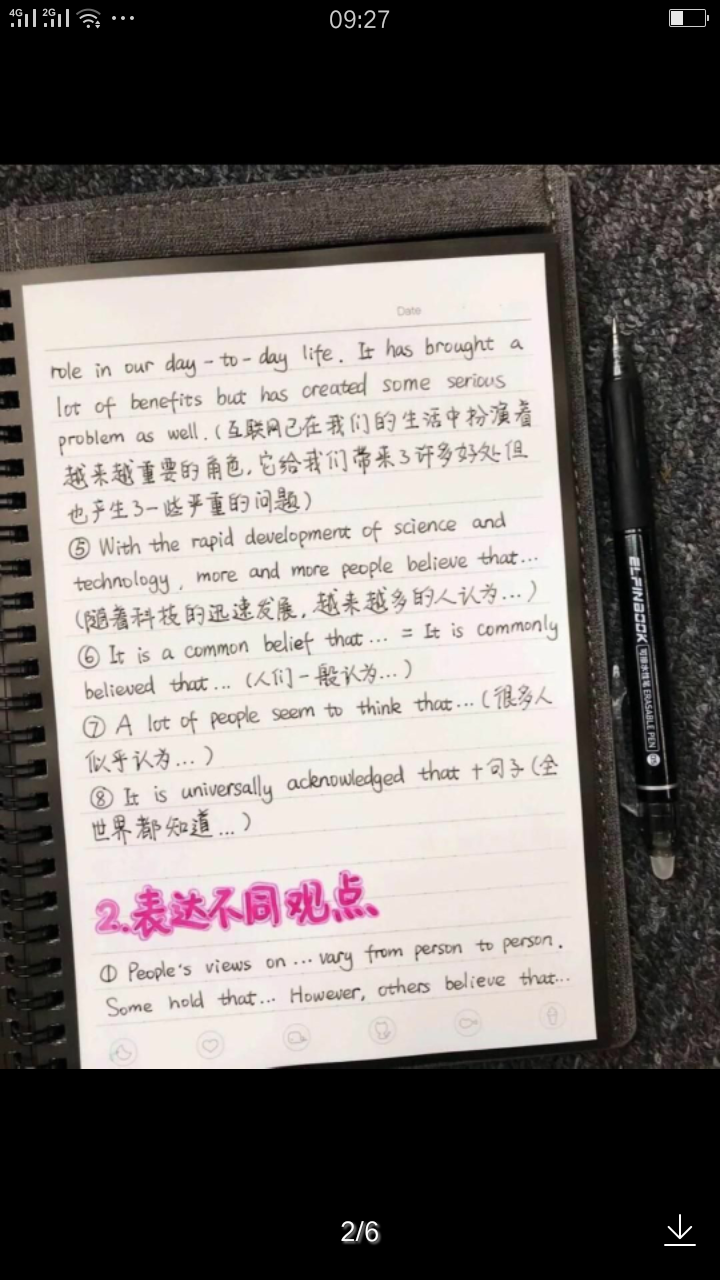 4G 2G 09:27
Date
role in our day-to-day life. It has brought a
lot of benefits but has created some serious
problem as well.(互联网已在我们的生活中扮演着
越来越重要的角色,它给我们带来了许多好处但
也产生了一些严重的问题)
⑤ With the rapid development of science and
technology, more and more people believe that...
(随着科技的迅速发展,越来越多的人认为...)
⑥ It is a common belief that... = It is commonly
believed that...(人们一般认为...)
⑦ A lot of people seem to think that...(很多人
似乎认为...)
⑧ It is universally acknowledged that +句子(全
世界都知道...)
2.表达不同观点
① People's views on ... vary from person to person.
Some hold that... However, others believe that...
ELFINBOOK 可擦水性笔 ERASABLE PEN
2/6